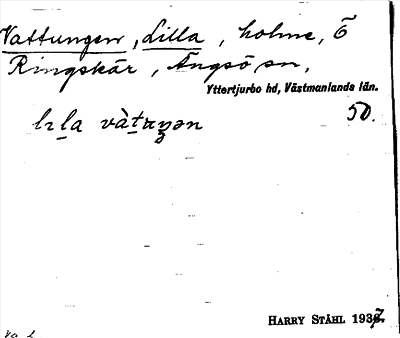 Vattungen, Lilla, holme, Ö
Ringskär, Ängsö sn,
Yttertjurbo hd, Västmanlands län.
50.
HARRY STÅHL 1937.